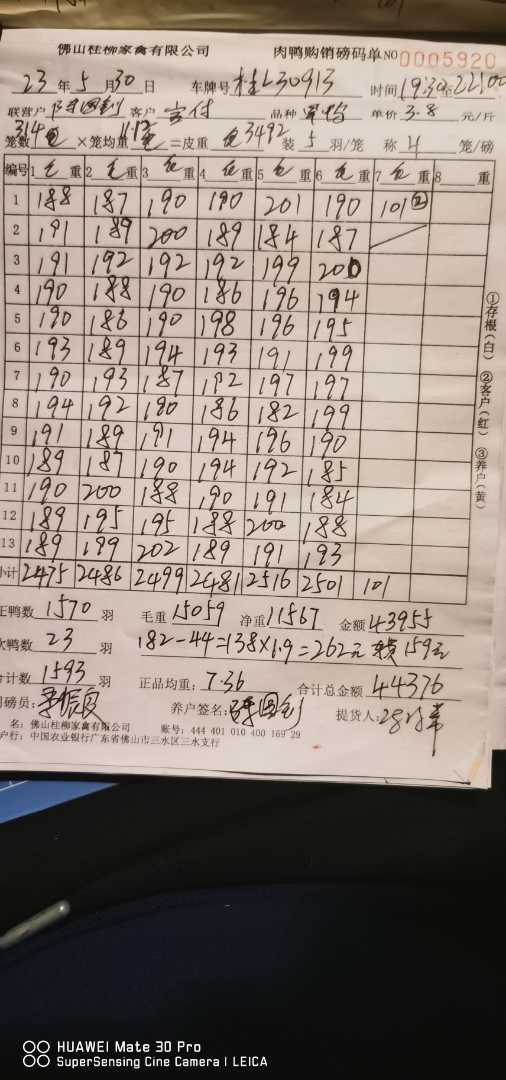 佛山桂柳家禽有限公司 肉鸭购销磅码单 NO 0005920
23 年 5 月 30 日 车牌号 桂L30913 时间 19:30至22:00
联营户 客户 品种 单价 3.8 元/斤
笼数 314 ×笼均重 =皮重 3492 装 5 羽/笼 称 4 笼/磅
编号 1 毛 重 2 毛 重 3 毛 重 4 毛 重 5 毛 重 6 毛 重 7 毛 重 8 重
1 188 187 190 190 201 190 101②
2 191 189 200 189 184 187
3 191 192 192 192 199 200
4 190 188 190 186 196 194
5 190 186 190 198 196 195
6 193 189 194 193 191 199
7 190 193 187 192 197 197
8 194 192 190 186 182 199
9 191 189 191 194 196 190
10 189 187 190 194 192 185
11 190 200 188 190 191 184
12 189 195 195 188 200 188
13 189 199 202 189 191 193
小计 2475 2486 2499 2481 2516 2501 101
正鸭数 1570 羽 毛重 15059 净重 11567 金额 43955
次鸭数 23 羽 182-44=138×1.9=262元 159元
合计数 1593 羽 正品均重: 7.36 合计总金额 44376
司磅员: 养户签名: 提货人:
名: 佛山桂柳家禽有限公司 账号: 444 401 010 400 169 29
户行: 中国农业银行广东省佛山市三水区三水支行
①存根(白) ②客户(红) ③养户(黄)
HUAWEI Mate 30 Pro
SuperSensing Cine Camera | LEICA